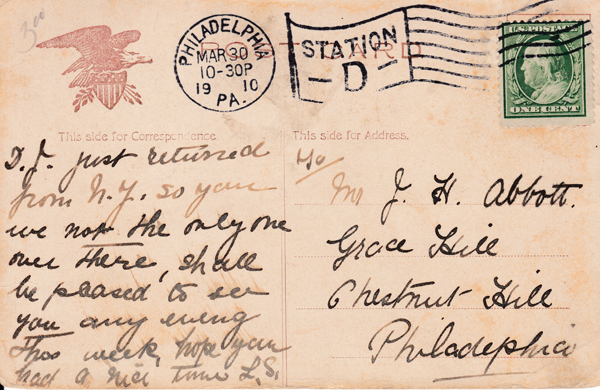 300
PHILADELPHIA
MAR 30
10-30P
1910
PA.
STATION
D
U.S. POSTAGE
ONE CENT
POST CARD
This side for Correspondence
This side for Address.
D.J. just returned
from N.Y. so you
we not the only one
over there, shall
be pleased to see
you any evening
This week, hope you
had a nice time L.S.
J. H. Abbott.
Grace Hill
Chestnut Hill
Philadelphia